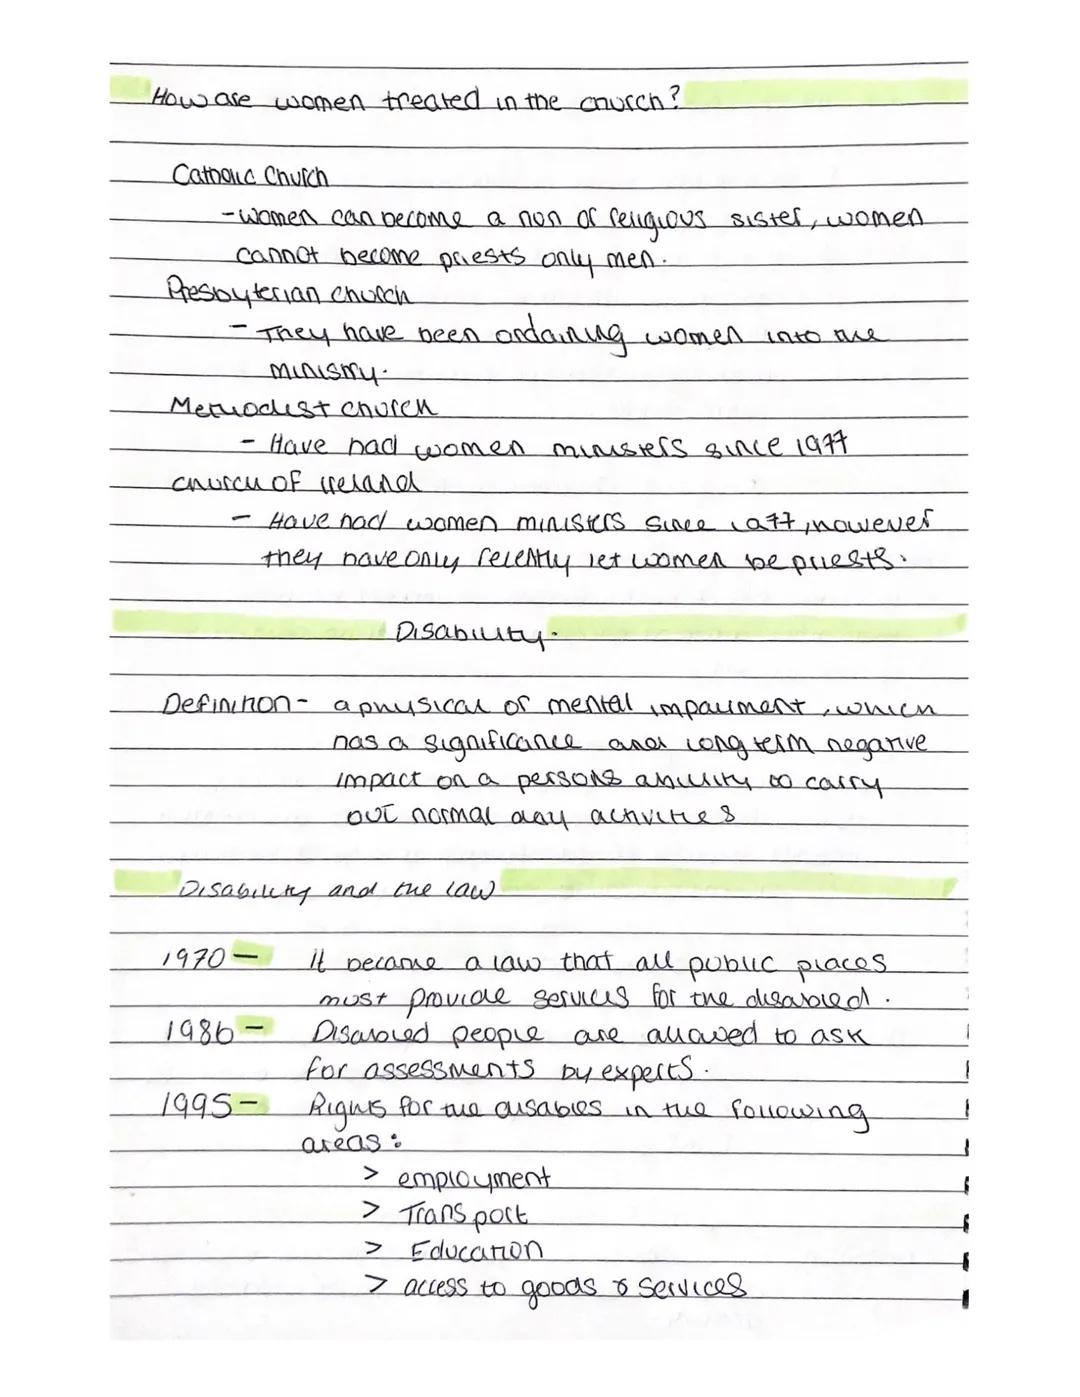 How are women treated in the church?
Catholic Church
- Women can become a non or religious sister, women
cannot become priests only men.
Presbyterian church
- They have been ordaining women into the
ministry.
Methodist church
- Have had women ministers since 1977
church of ireland
- Have had women ministers since 1977, however
they have only recently let women be priests.
Disability.
Definition - a physical or mental impairment, which
has a significance and long term negative
impact on a persons ability to carry
out normal day activities
Disability and the law
1970 - it became a law that all public places
must provide services for the disabled.
1986 - Disabled people are allowed to ask
for assessments by experts.
1995 - Rights for the disables in the following
areas:
> employment
> Transport
> Education
> access to goods & services